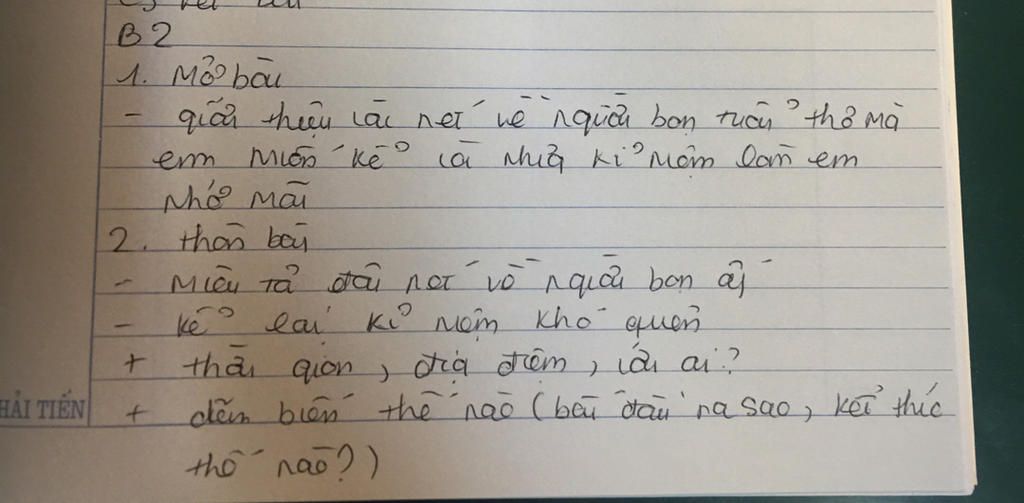 B2
1. Mở bài
- giới thiệu vài nét về người bạn tuổi thơ mà
em muốn kể và những kỉ niệm làm em
nhớ mãi
2. thân bài
- Miêu tả đôi nét về người bạn ấy
- kể lại kỉ niệm khó quên
+ thời gian, địa điểm, với ai?
+ diễn biến thế nào (bắt đầu ra sao, kết thúc
HẢI TIẾN
thế nào?)